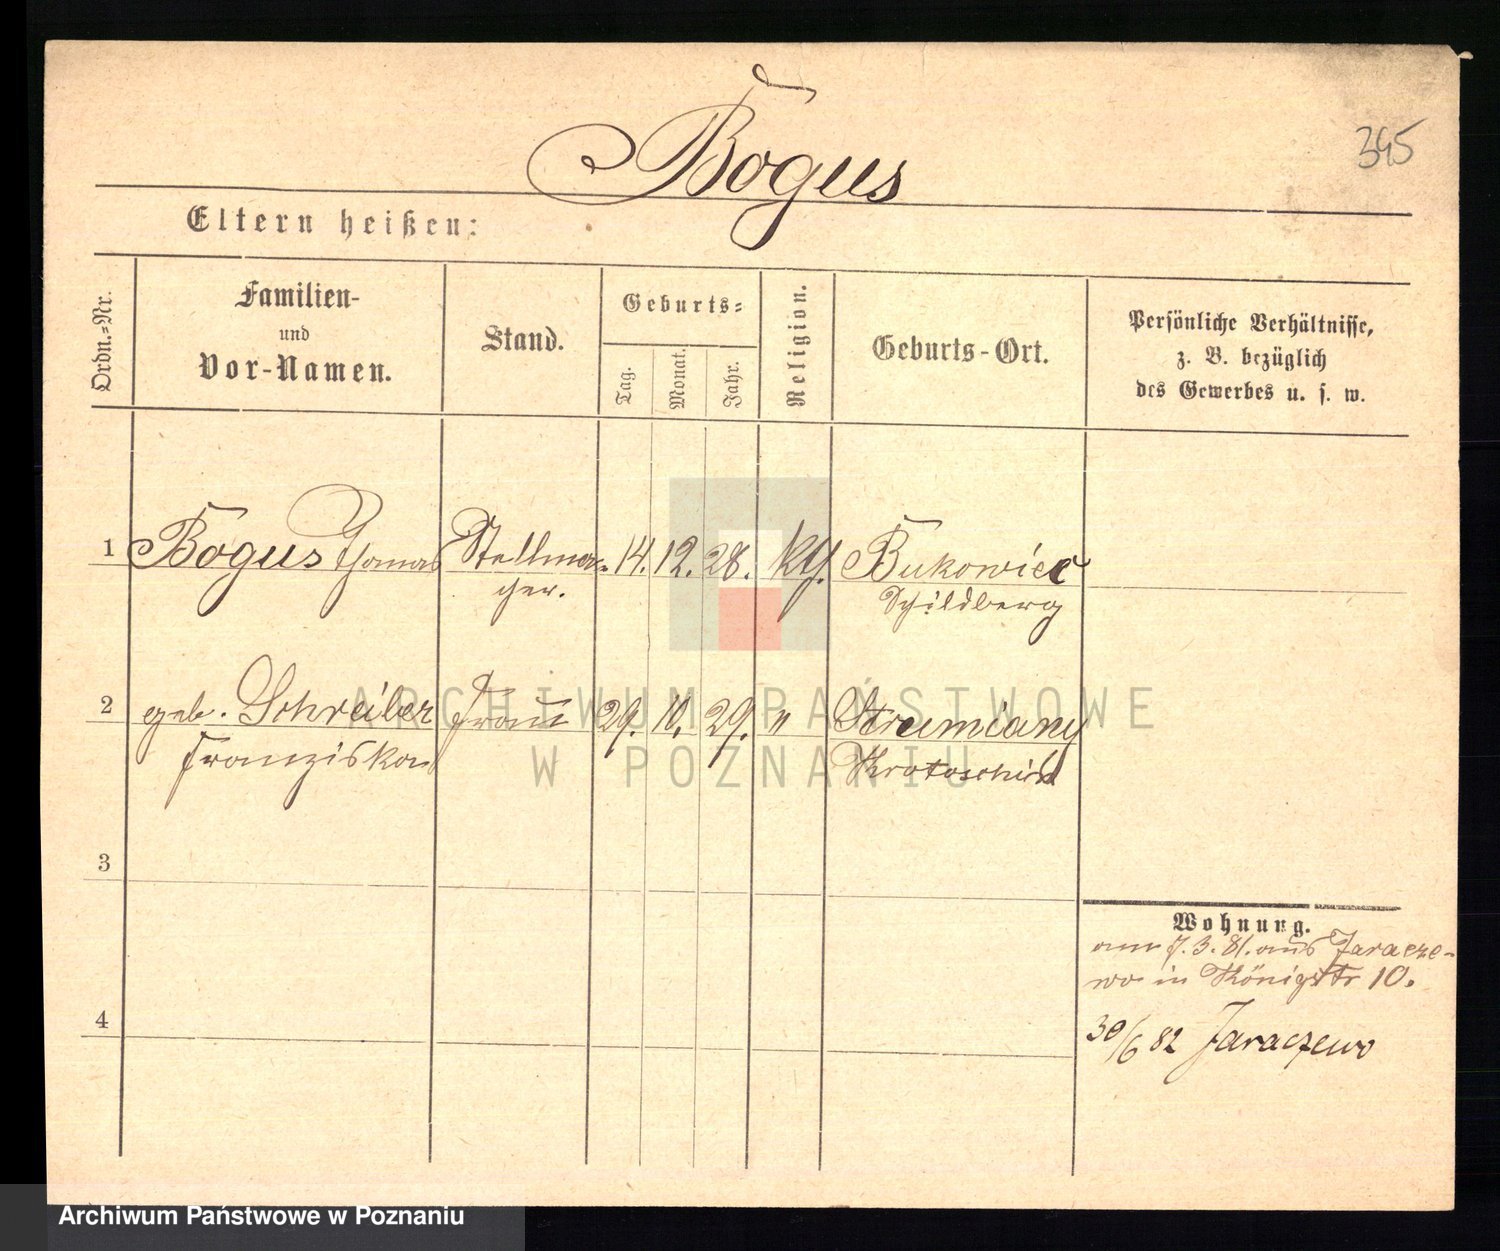 Bogus
395
Eltern heißen:
Ordn.-Nr.
Familien-
und
Vor-Namen.
Stand.
Geburts-
Tag.
Monat.
Jahr.
Religion.
Geburts-Ort.
Persönliche Verhältnisse,
z. B. bezüglich
des Gewerbes u. s. w.
1 Bogus Thomas Stellma- 14. 12. 28. kth. Bukowiec
cher. Schildberg
2 geb. Schreiber Frau 29. 10. 29. " Strumiany
Franziska Krotoschin
3
4
Wohnung.
am 7.3.81. aus Jaracze-
wo in Königstr 10.
30/6 82 Jaraczewo
ARCHIWUM PAŃSTWOWE
W POZNANIU
Archiwum Państwowe w Poznaniu